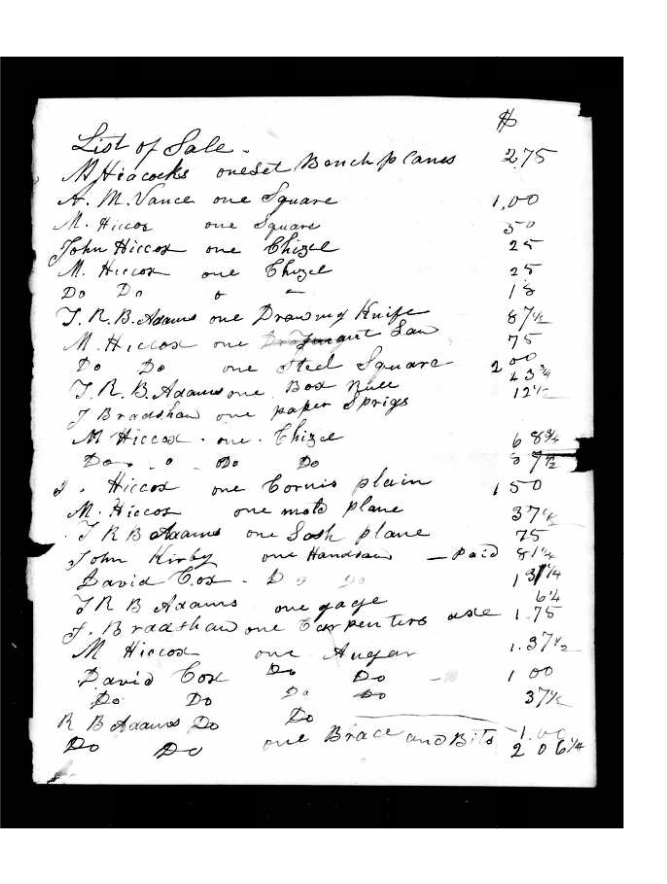 $
List of Sale.
M Hiacocks one Set Bench planes 2.75
A. M. Vance one Square 1,00
M. Hiccox one Square 50
John Hiccox one Chizel 25
M. Hiccox one Chizel 25
Do Do 18
T. R. B. Adams one Drawing Knife 87½
M. Hiccox one Tenant Saw 75
Do Do one Steel Square 2 00
T. R. B. Adams one Box Rule 43¾
J Bradshaw one paper Sprigs 12½
M Hiccox. one. Chizel 6 8¾
Do Do Do 87½
Hiccox one Cornis plain 1 50
M. Hiccox one moto plane 37½
T R B Adams one Sash plane 75
John Kirby one Handsaw – paid 81¼
David Cox. Do Do 1 31¼
T R B Adams one gage 6¼
J. Bradshaw one Carpenters adse 1.75
M Hiccox one Augar 1.37½
David Cox Do Do 1 00
Do Do Do Do 37½
R B Adams Do Do 1.00
Do Do one Brace and Bits 2 0 6¼